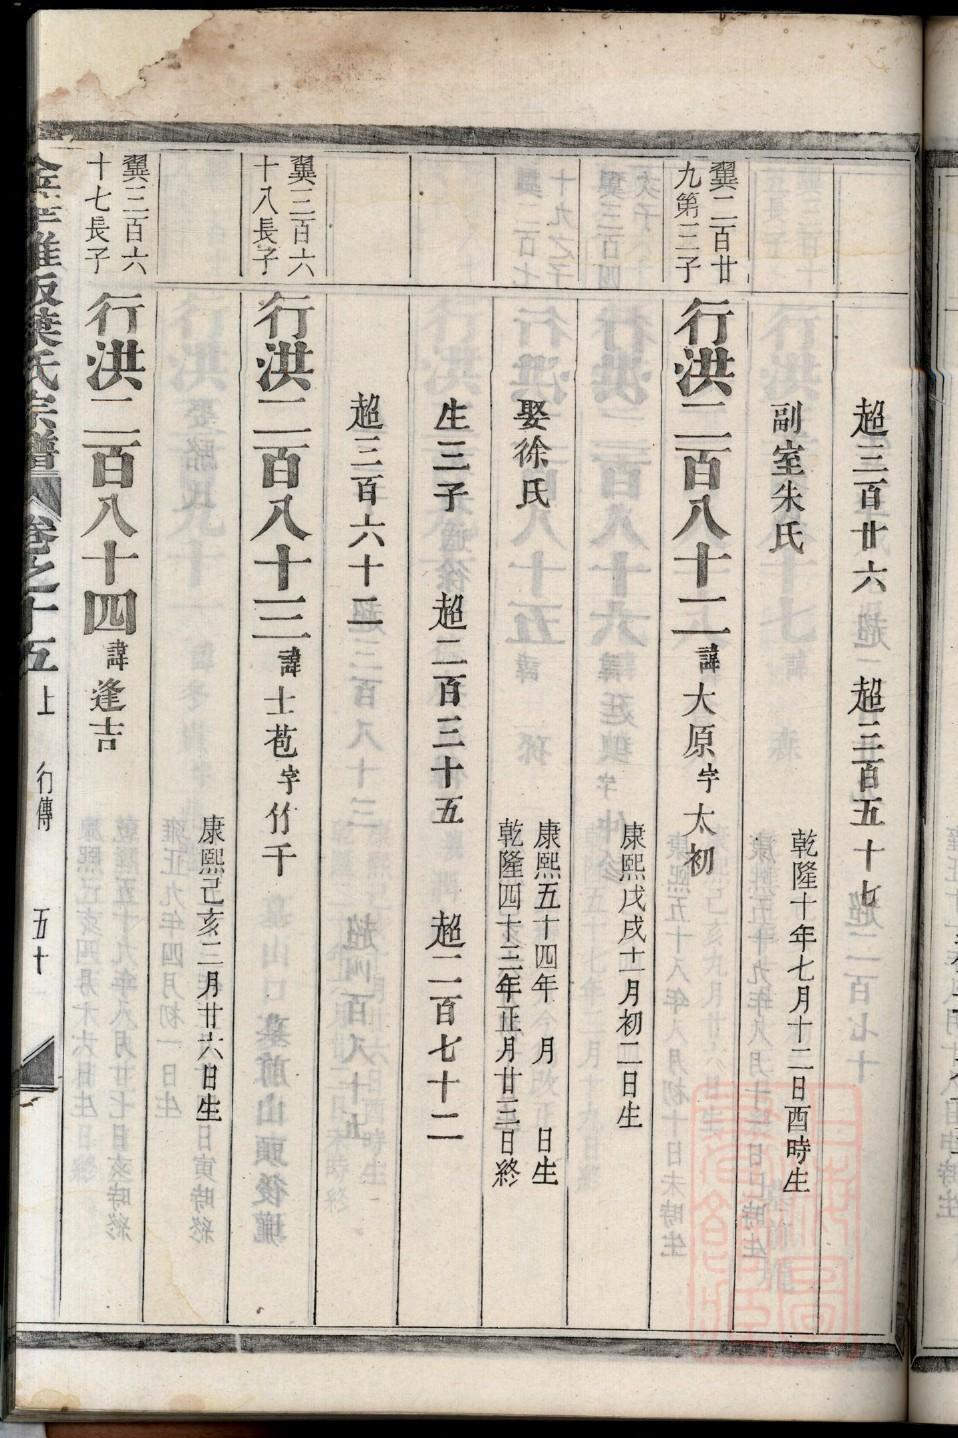 超三百廿六　超三百五十七
副室朱氏　乾隆十年七月十二日酉時生
翼二百廿
九第三子
行洪二百八十二諱大原字太初
康熙戊戌十一月初二日生
娶徐氏
康熙五十四年　月　日生
乾隆四十三年正月廿三日終
生三子　超二百三十五　超二百七十二
超三百六十二
翼三百六
十八長子
行洪二百八十三諱士苞字竹千
康熙己亥二月廿六日生
翼三百六
十七長子
行洪二百八十四諱逢吉
葉氏宗譜　卷之十五　上　行傳　五十